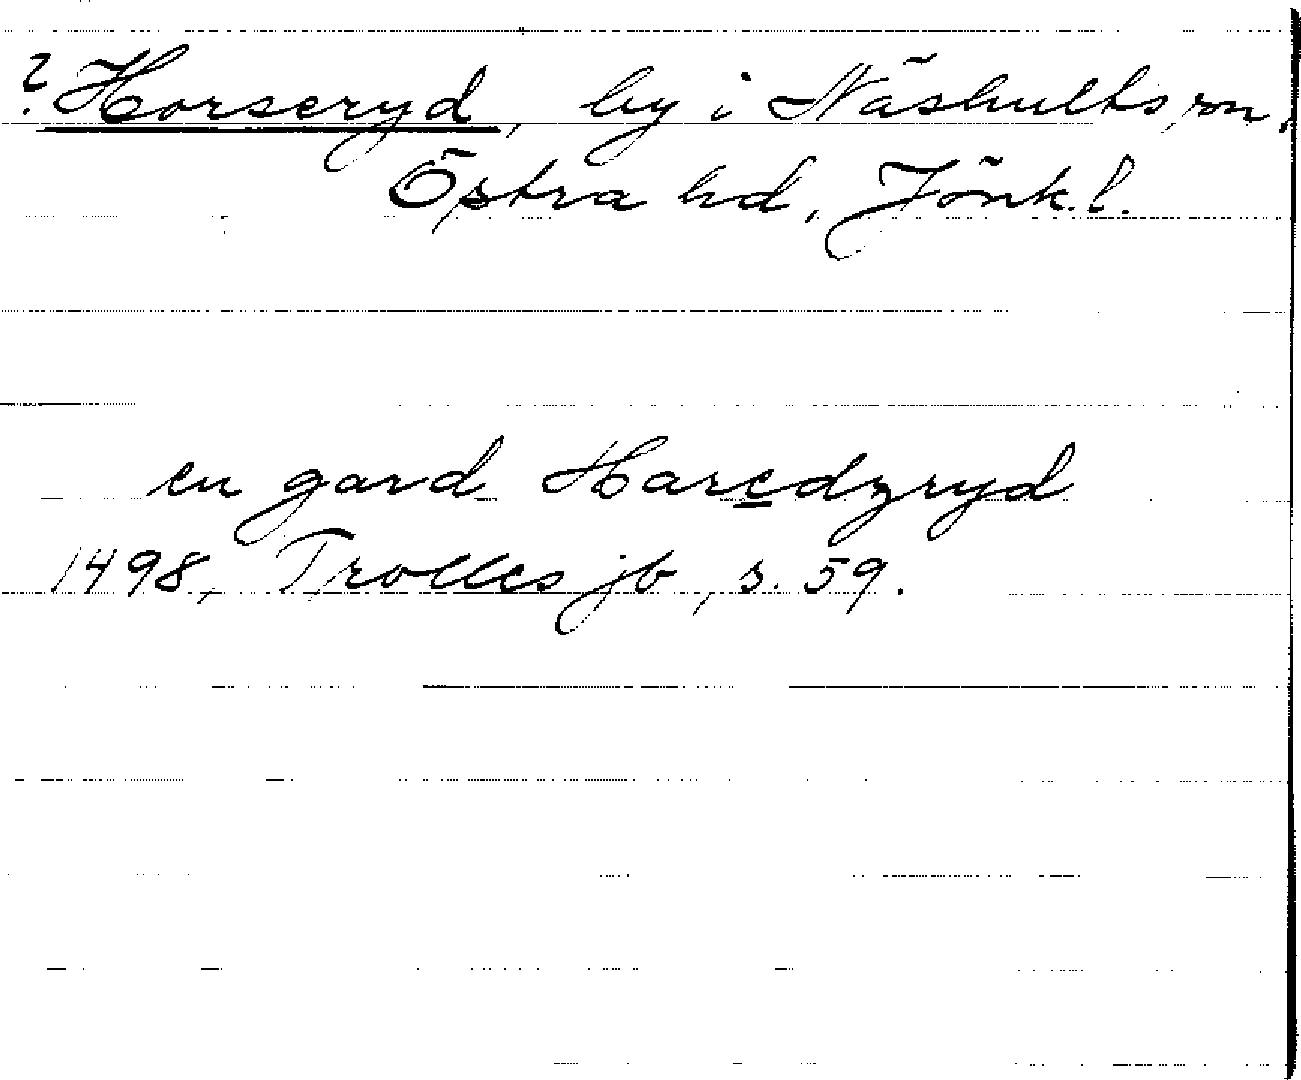 ? Horseryd, by i Näshults sn,
Östra hd, Jönk.l.
en gard Haredzryd
1498, Trolles jb, s. 59.